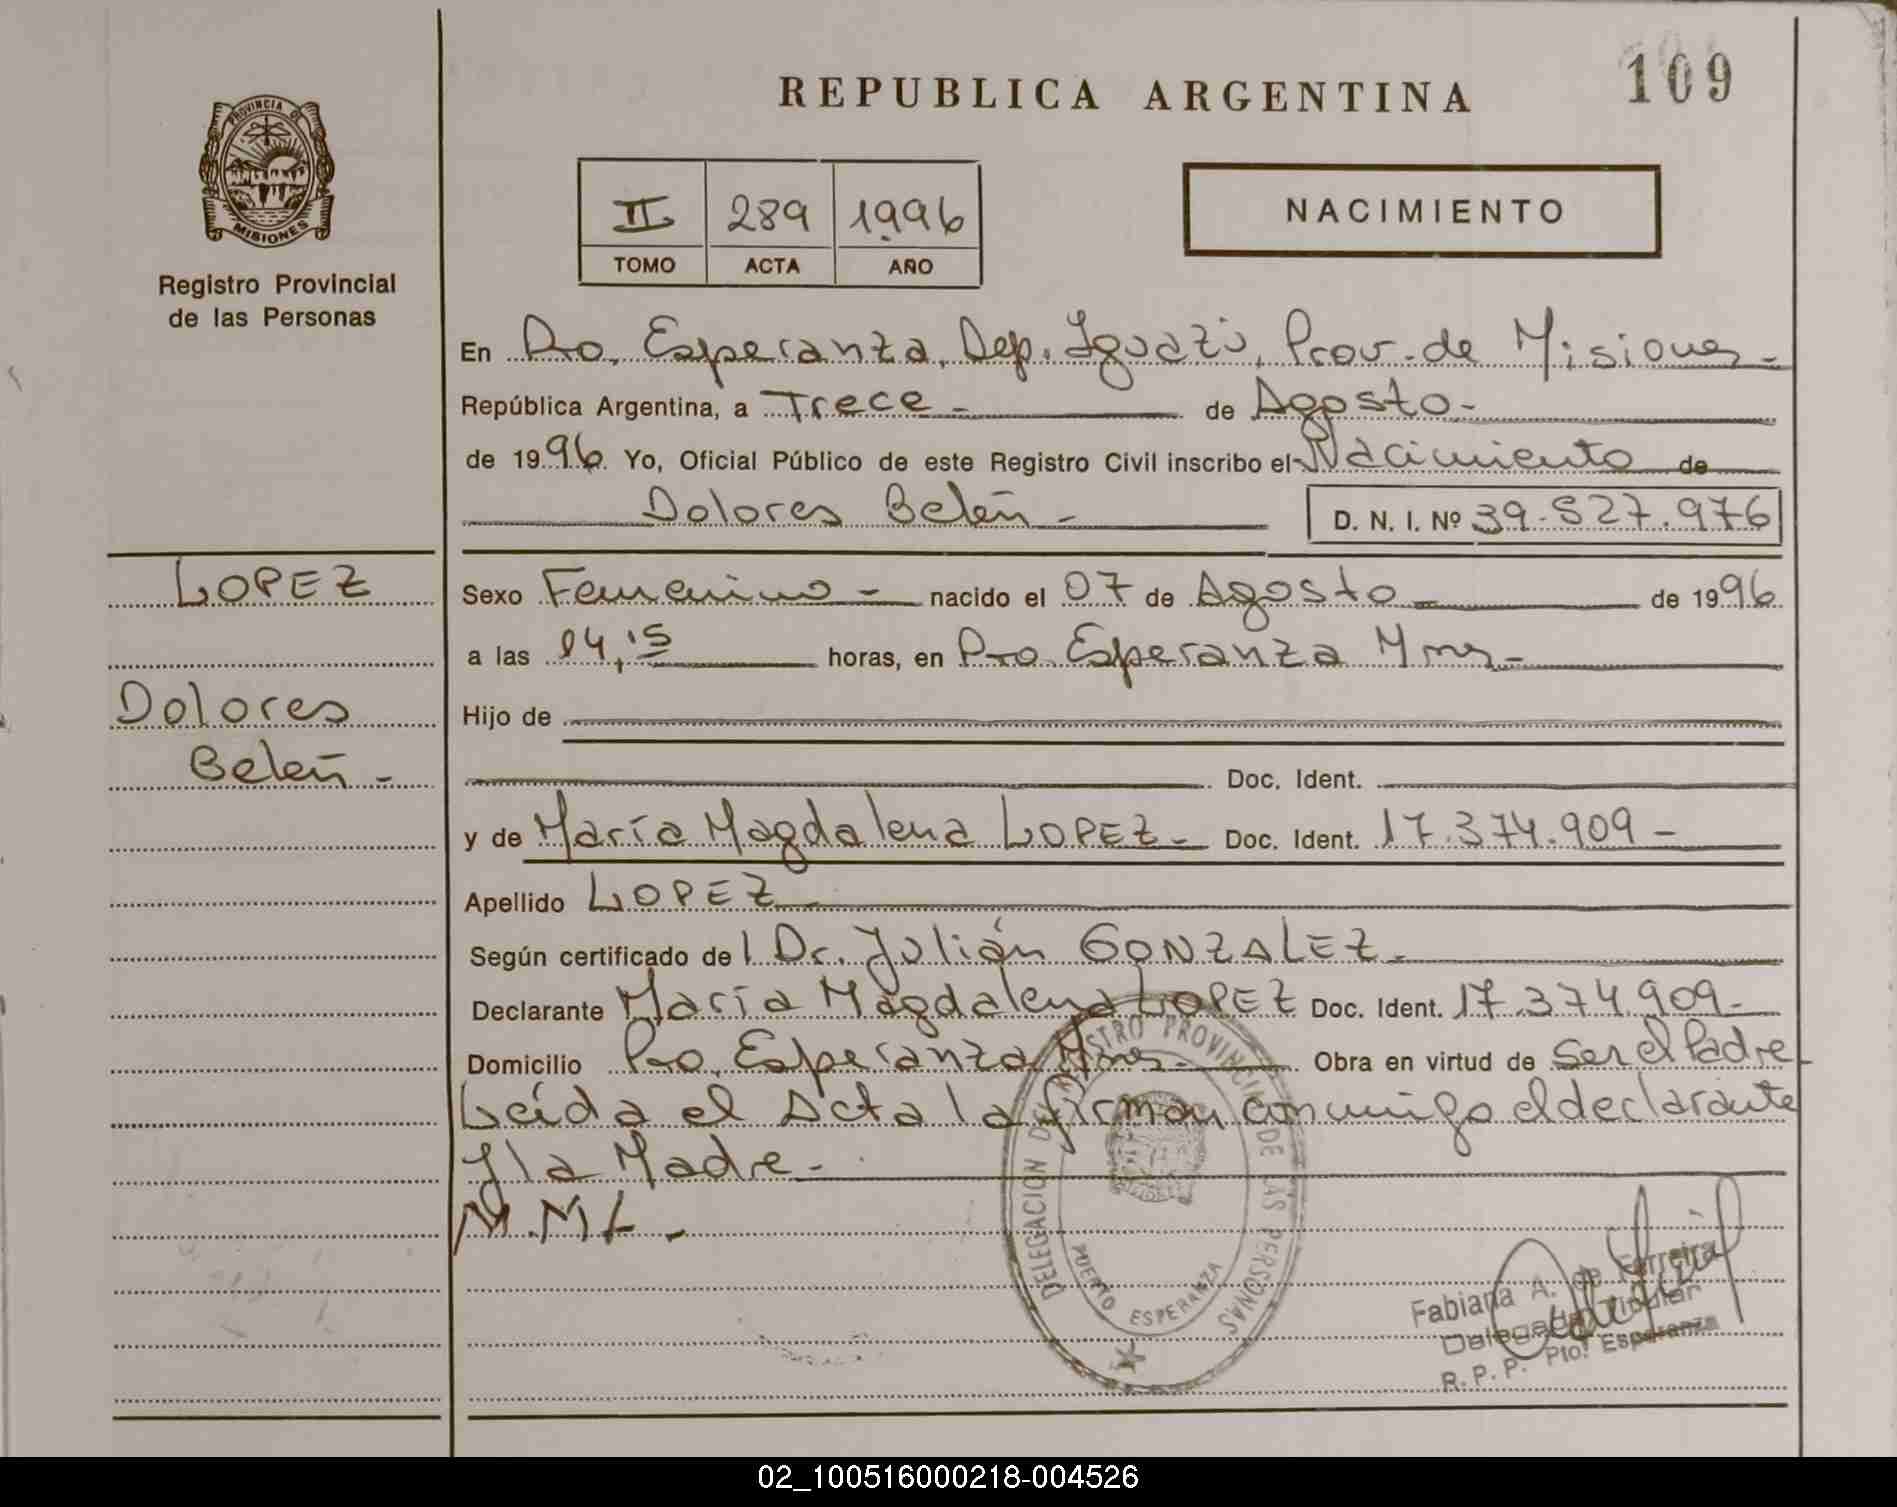 109
REPUBLICA ARGENTINA
PROVINCIA DE
MISIONES
Registro Provincial
de las Personas
II 289 1996
TOMO ACTA AÑO
NACIMIENTO
En Pto. Esperanza, Dep. Iguazú, Prov. de Misiones -
República Argentina, a Trece - de Agosto -
de 1996. Yo, Oficial Público de este Registro Civil inscribo el Nacimiento de
Dolores Belén - D. N. I. Nº 39.527.976
LOPEZ
Dolores
Belén -
Sexo Femenino - nacido el 07 de Agosto - de 1996
a las 14,15 horas, en Pto. Esperanza Mnes -
Hijo de
Doc. Ident.
y de María Magdalena LOPEZ - Doc. Ident. 17.374.909 -
Apellido LOPEZ -
Según certificado de l Dr. Julián GONZALEZ -
Declarante María Magdalena LOPEZ Doc. Ident. 17.374.909 -
Domicilio Pto. Esperanza Mnes - Obra en virtud de ser el Padre
Leída el Acta la firman conmigo el declarante
y la Madre -
M.M.L -
DELEGACION DEL REGISTRO PROVINCIAL DE LAS PERSONAS
PUERTO ESPERANZA
Fabiana A. de Ferreira
Delegada Titular
R. P. P. Pto. Esperanza
02_100516000218-004526